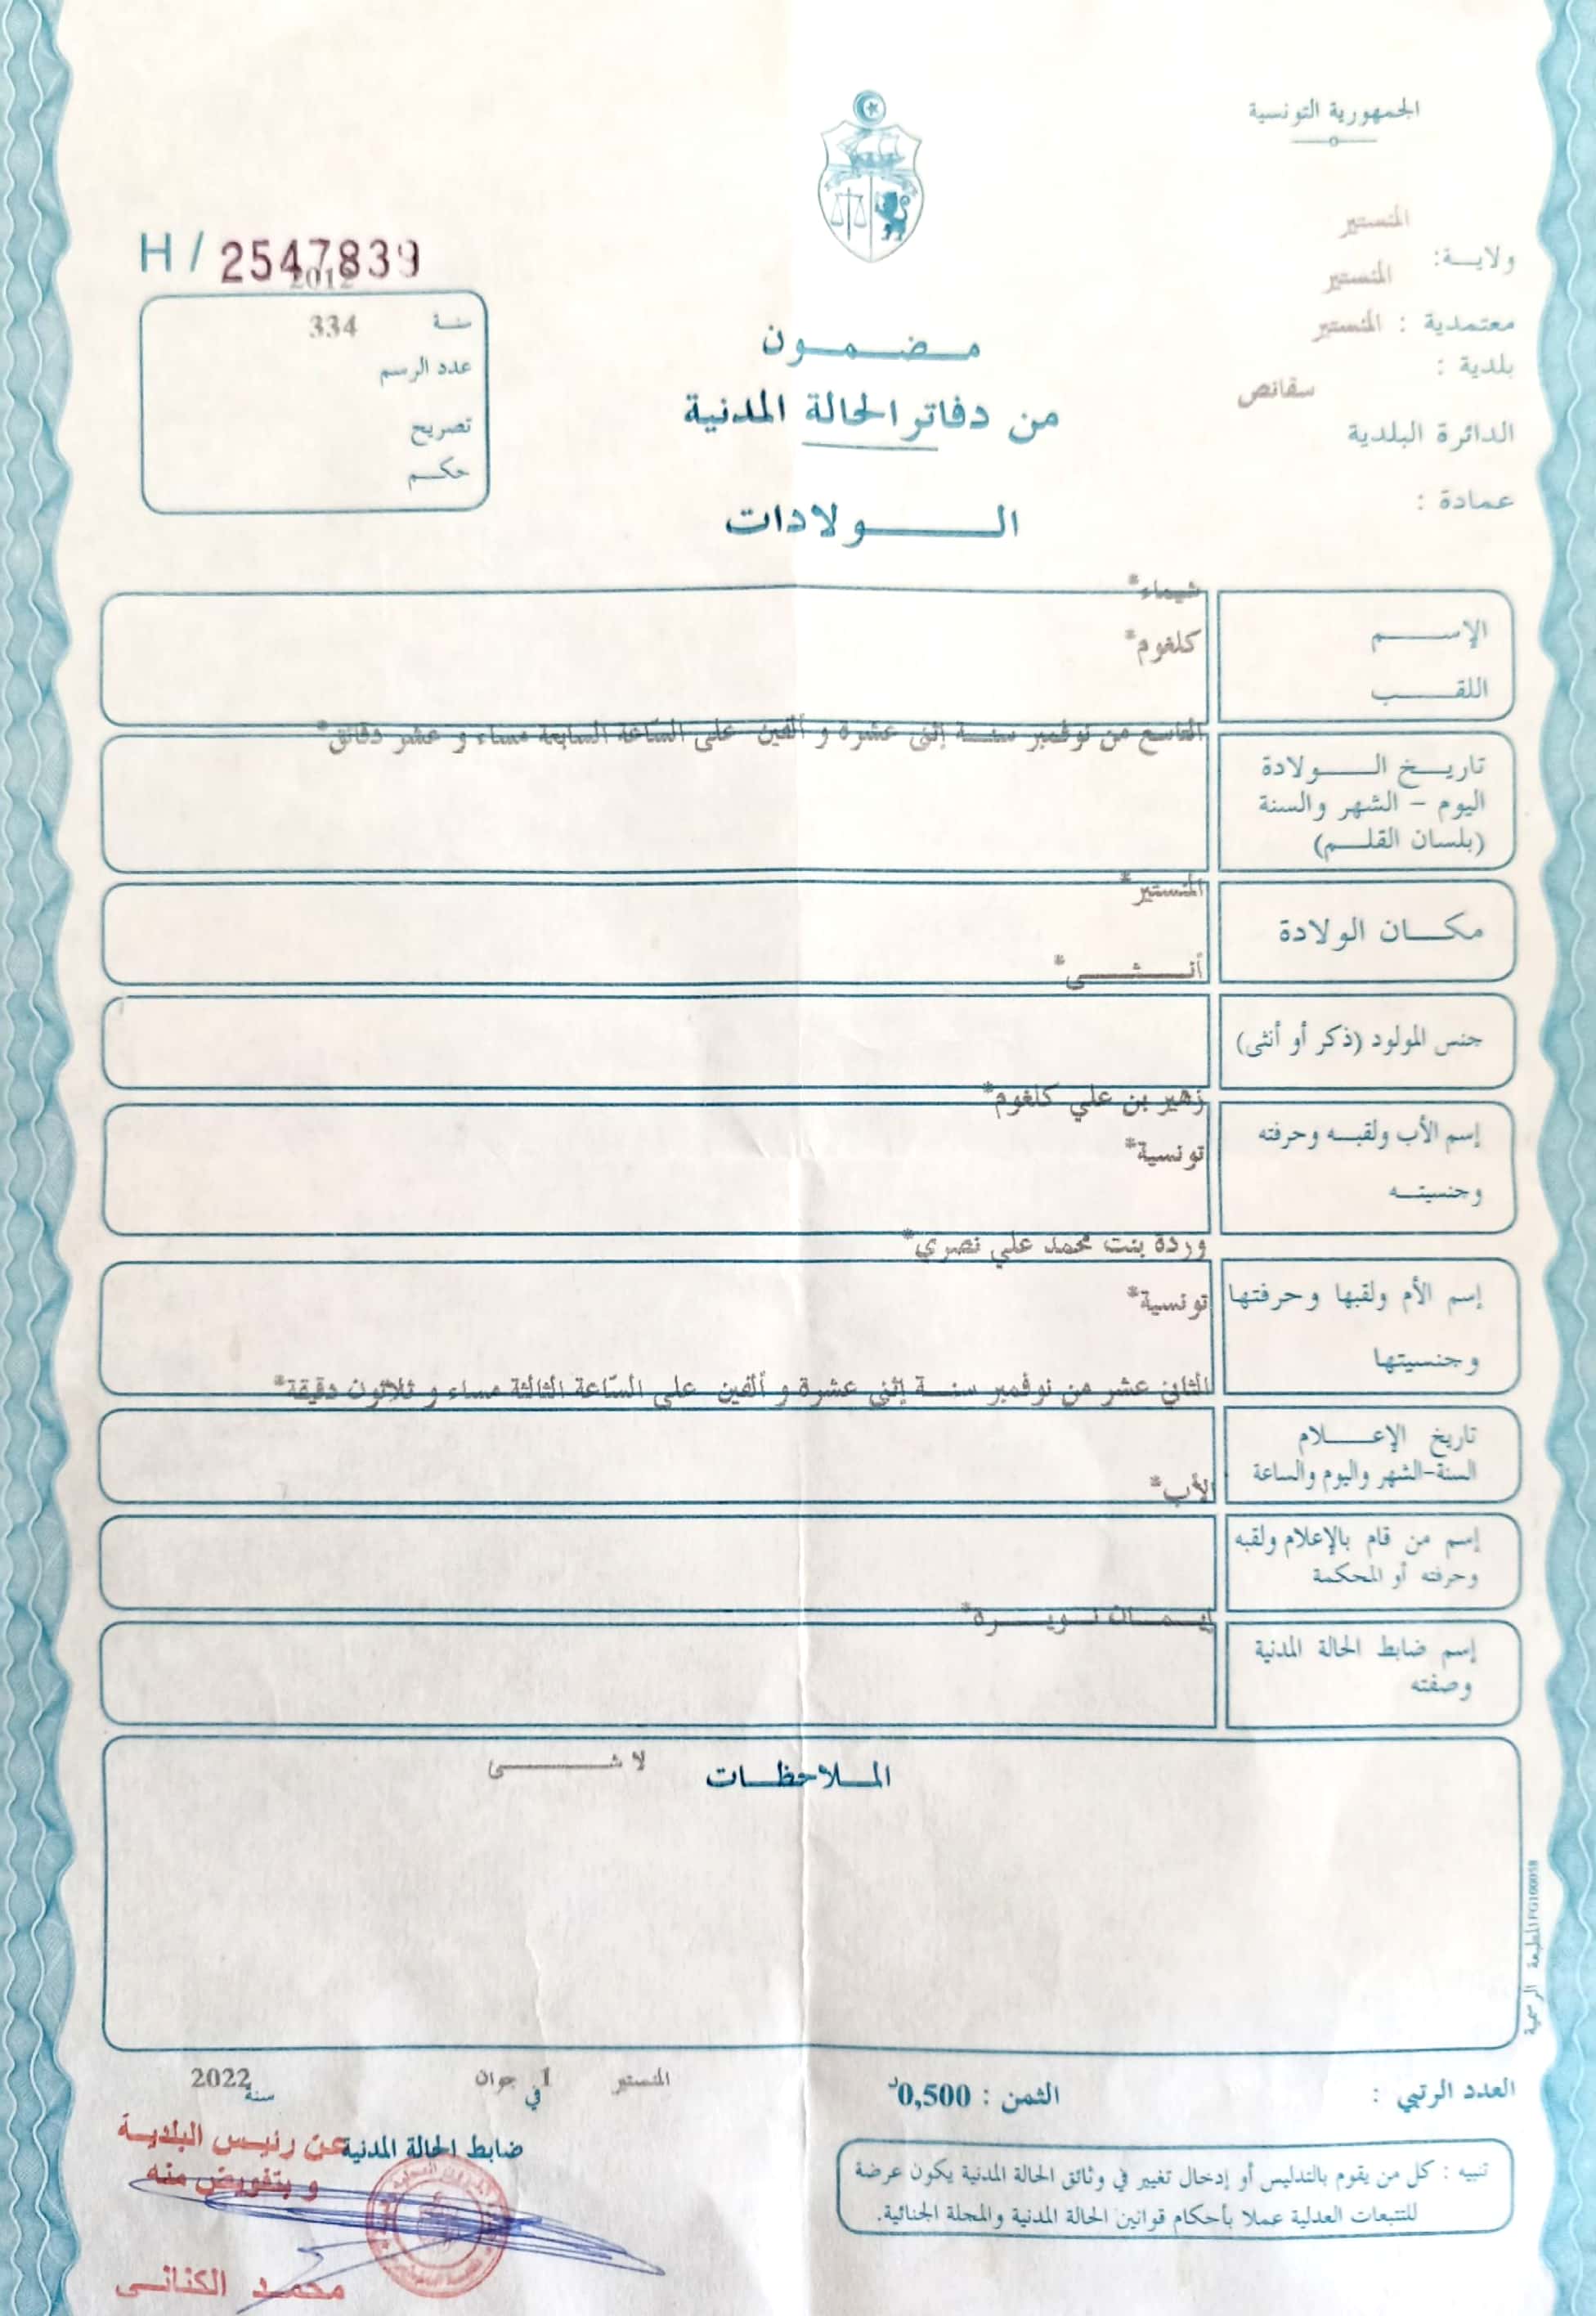 الجمهورية التونسية
المنستير
ولايـــة:
المنستير
معتمدية : المنستير
بلدية :
سقانص
الدائرة البلدية
عمادة :
H / 2547839
2012
سنــة
334
عدد الرسم
تصريح
حكــم
مـضـمـون
من دفاتر الحالة المدنية
الـــولادات
شيماء*
الإســـــم
كلغوم*
اللقـــــب
التاسع من نوفمبر سنــة إثنى عشرة و ألفين على السّاعة السابعة مساء و عشر دقائق*
تاريــخ الــــولادة
اليوم – الشهر والسنة
(بلسان القلــم)
المنستير*
مكــان الولادة
أنـــثـــى*
جنس المولود (ذكر أو أنثى)
زهير بن علي كلغوم*
إسم الأب ولقبــه وحرفته
تونسية*
وجنسيتــه
وردة بنت محمد علي نصري*
إسم الأم ولقبها وحرفتها
تونسية*
وجنسيتها
الثاني عشر من نوفمبر سنــة إثنى عشرة و ألفين على السّاعة الثالثة مساء و ثلاثون دقيقة*
تاريخ الإعـــلام
السنة-الشهر واليوم والساعة
لأب*
إسم من قام بالإعلام ولقبه
وحرفته أو المحكمة
إيـمــان نــويــــرة*
إسم ضابط الحالة المدنية
وصفته
المــلاحظــات
لا شـــــى
المطبعة الرسمية
العدد الرتبي :
الثمن : 0,500د
المنستير
في
1 جوان
سنة
2022
ضابط الحالة المدنية
عن رئيس البلدية
و بتفويض منه
محمد الكنانـي
تنبيه : كل من يقوم بالتدليس أو إدخال تغيير في وثائق الحالة المدنية يكون عرضة
للتتبعات العدلية عملا بأحكام قوانين الحالة المدنية والمجلة الجنائية.